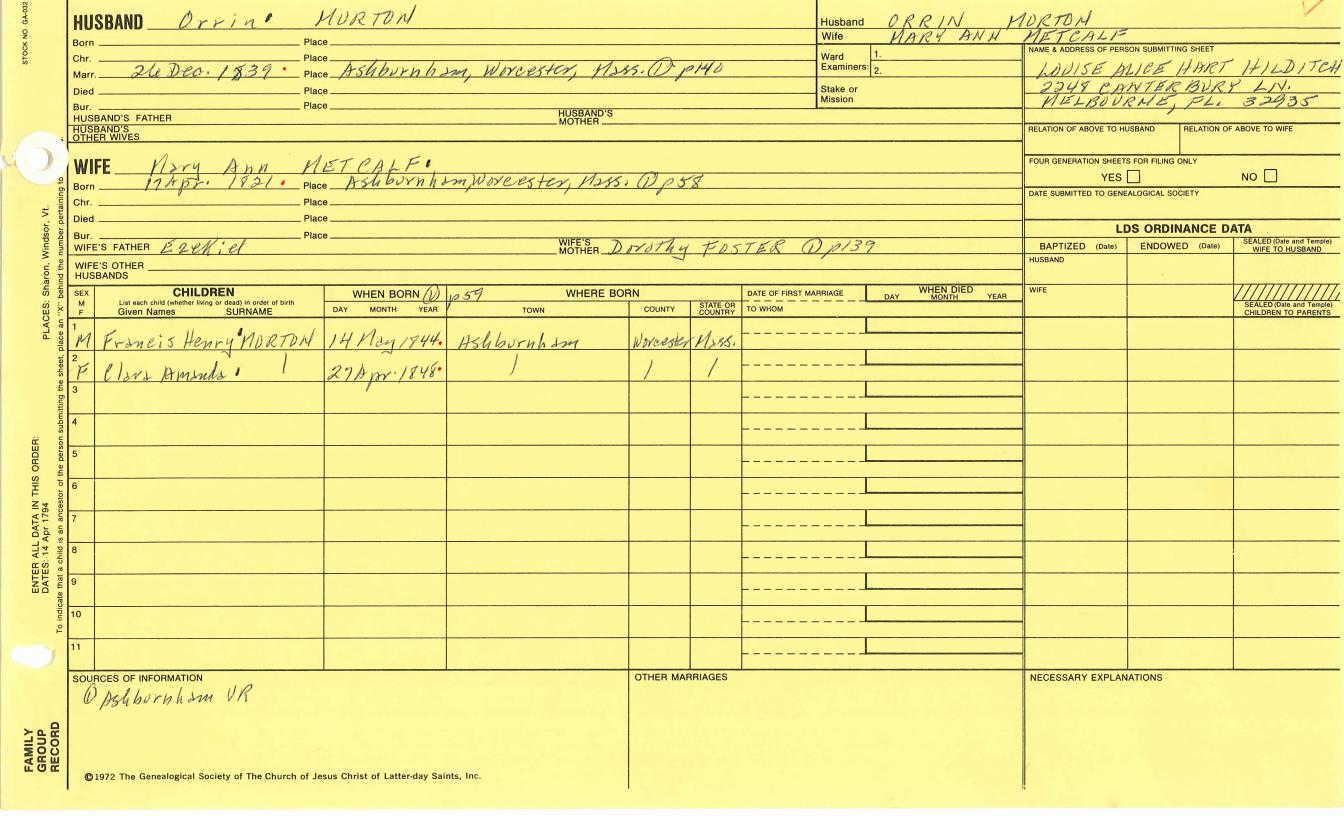 STOCK NO. GA-032
HUSBAND Orrin MORTON
Born Place
Chr. Place
Marr. 26 Dec. 1839 Place Ashburnham, Worcester, Mass. ① p140
Died Place
Bur. Place
HUSBAND'S FATHER HUSBAND'S MOTHER
HUSBAND'S OTHER WIVES
Husband ORRIN MORTON
Wife MARY ANN METCALF
Ward Examiners: 1.
2.
Stake or Mission
NAME & ADDRESS OF PERSON SUBMITTING SHEET
LOUISE ALICE HART HILDITCH
2248 CANTERBURY LN.
MELBOURNE, FL. 32935
RELATION OF ABOVE TO HUSBAND RELATION OF ABOVE TO WIFE
FOUR GENERATION SHEETS FOR FILING ONLY
YES NO
DATE SUBMITTED TO GENEALOGICAL SOCIETY
WIFE Mary Ann METCALF
Born 17 Apr. 1821 Place Ashburnham, Worcester, Mass. ① p58
Chr. Place
Died Place
Bur. Place
WIFE'S FATHER Ezekiel WIFE'S MOTHER Dorothy FOSTER ① p139
WIFE'S OTHER HUSBANDS
LDS ORDINANCE DATA
BAPTIZED (Date) ENDOWED (Date) SEALED (Date and Temple) WIFE TO HUSBAND
HUSBAND
WIFE
SEALED (Date and Temple) CHILDREN TO PARENTS
SEX M F CHILDREN WHEN BORN ① p59 WHERE BORN DATE OF FIRST MARRIAGE WHEN DIED
List each child (whether living or dead) in order of birth
Given Names SURNAME DAY MONTH YEAR TOWN COUNTY STATE OR COUNTRY TO WHOM DAY MONTH YEAR
1 M Francis Henry MORTON 14 May 1844 Ashburnham Worcester Mass.
2 F Clara Amanda 27 Apr. 1848
3
4
5
6
7
8
9
10
11
SOURCES OF INFORMATION OTHER MARRIAGES NECESSARY EXPLANATIONS
① Ashburnham VR
©1972 The Genealogical Society of The Church of Jesus Christ of Latter-day Saints, Inc.
FAMILY GROUP RECORD
ENTER ALL DATA IN THIS ORDER:
DATES: 14 Apr 1794 PLACES: Sharon, Windsor, Vt.
To indicate that a child is an ancestor of the person submitting the sheet, place an "X" behind the number pertaining to